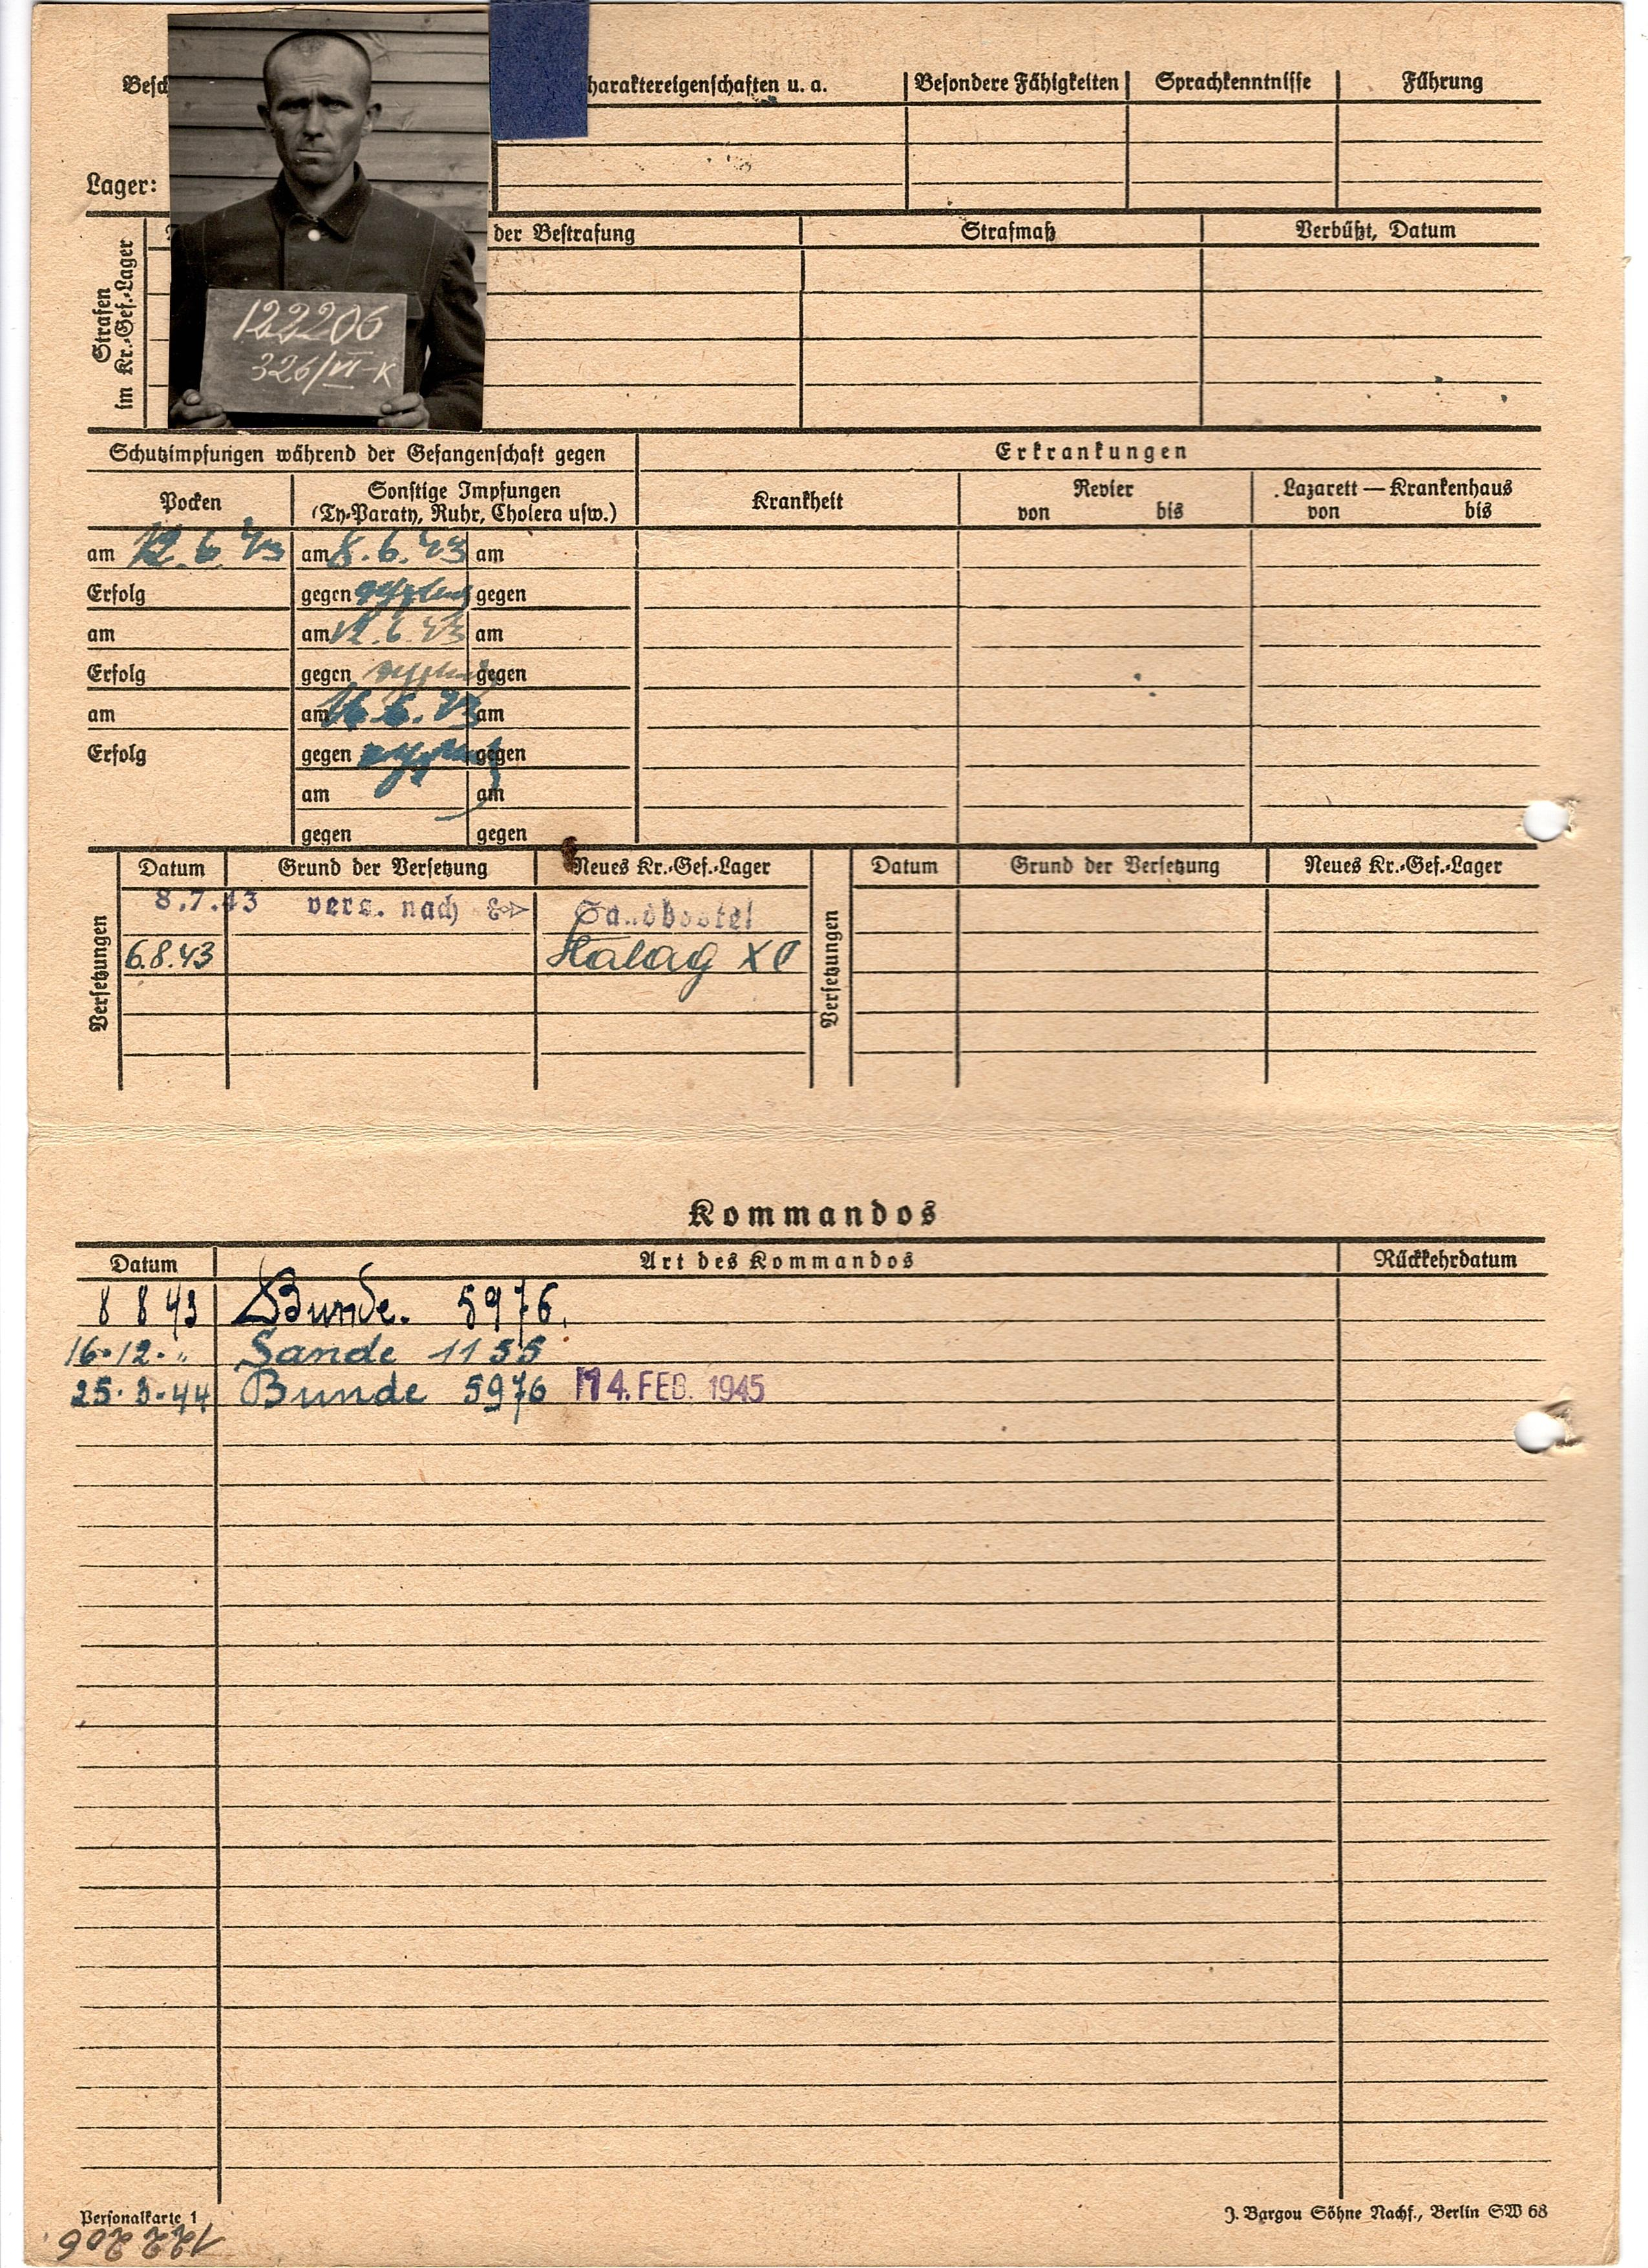 Besch
haraktereigenschaften u. a.
Besondere Fähigkeiten
Sprachkenntnisse
Führung
Lager:
Strafen
im Kr.-Gef.-Lager
der Bestrafung
Strafmaß
Verbüßt, Datum
122206
326/VI-K
Schutzimpfungen während der Gefangenschaft gegen
Erkrankungen
Pocken
Sonstige Impfungen
(Ty-Paraty, Ruhr, Cholera usw.)
Krankheit
Revier
von bis
Lazarett — Krankenhaus
von bis
am 12.6.43 am 8.6.43 am
Erfolg gegen gegen
am am 12.6.43 am
Erfolg gegen gegen
am am 16.6.43 am
Erfolg gegen gegen
am am
gegen gegen
Versetzungen
Datum Grund der Versetzung Neues Kr.-Gef.-Lager
8.7.43 vers. nach Sandbostel
6.8.43 Stalag XC
Versetzungen
Datum Grund der Versetzung Neues Kr.-Gef.-Lager
Kommandos
Datum Art des Kommandos Rückkehrdatum
8 8 43 Bunde. 5976.
16.12. " Sande 1155
25.3.44 Bunde 5976 14. FEB. 1945
Personalkarte 1
J. Bargou Söhne Nachf., Berlin SW 68
122206